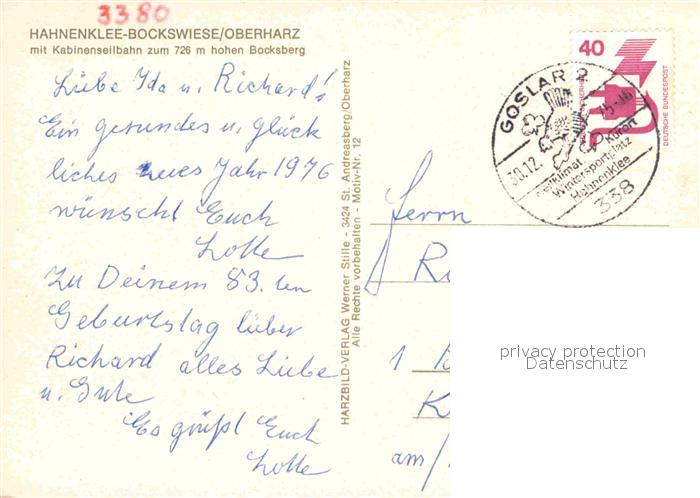 3380
HAHNENKLEE-BOCKSWIESE/OBERHARZ
mit Kabinenseilbahn zum 726 m hohen Bocksberg
Liebe Ida u. Richard!
Ein gesundes u. glück
liches neues Jahr 1976
wünscht Euch
Lotte
Zu Deinem 83. ten
Geburtstag lieber
Richard alles Liebe
u. Gute
Es grüßt Euch
Lotte
HARZBILD-VERLAG Werner Stille - 3424 St. Andreasberg/Oberharz
Alle Rechte vorbehalten - Motiv-Nr. 12
40
DEUTSCHE BUNDESPOST
GOSLAR 2
30.12.
Heilklimat. Kurort
Wintersportplatz
Hahnenklee
338
Herrn
R
1
K
am/
privacy protection
Datenschutz